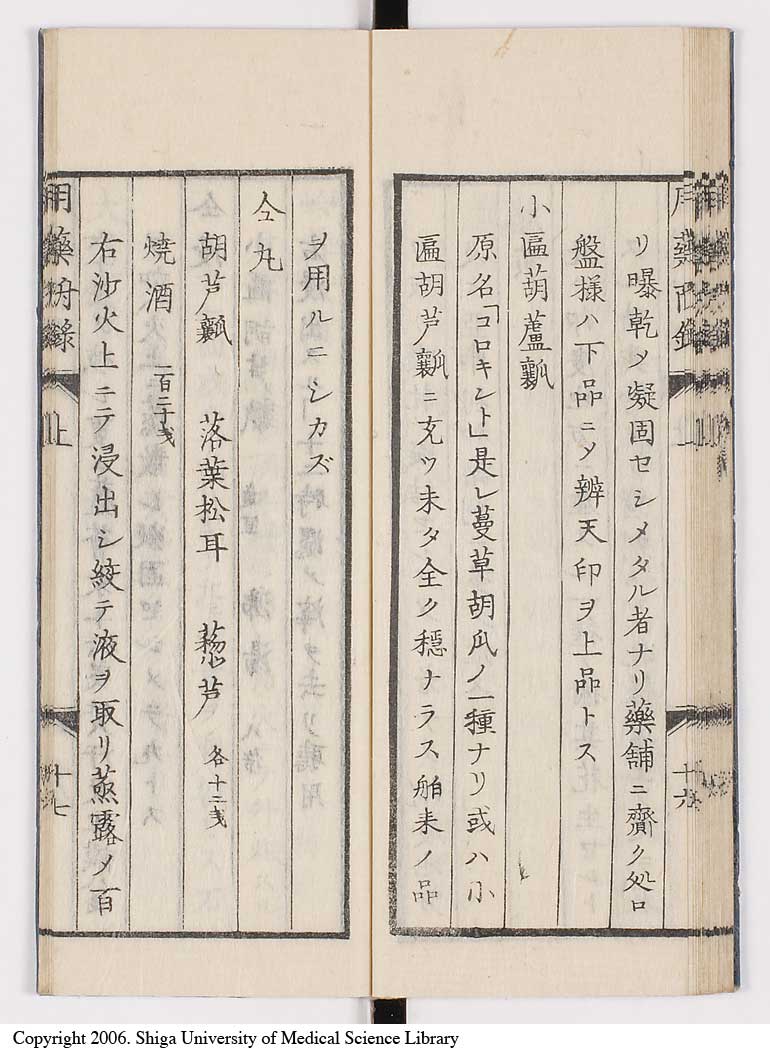 リ曝乾メ凝固セシメタル者ナリ藥舗ニ齎ク処ロ
盤様ハ下品ニメ辨天印ヲ上品トス
小匾葫蘆瓤
原名「コロキント」是レ蔓草胡瓜ノ一種ナリ或ハ小
匾胡芦瓤ニ充ツ未タ全ク穏ナラス舶来ノ品
十六
ヲ用ルニシカズ
仝丸
胡芦瓤 落葉松耳 藜芦 各十二戔
焼酒 一百二十戔
右沙火上ニテ浸出シ絞テ液ヲ取リ蒸露メ百
用藥 録 上 十七
Copyright 2006. Shiga University of Medical Science Library